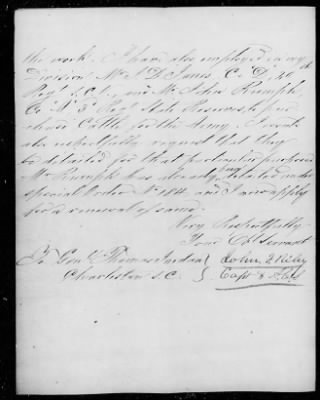 the work. I have also employed in my
Division Mr. J D Jones Co. D, 20th
Reg't S.C.V., and Mr. John Rumph,
Co "A" 3d Reg't State Reserves to pur
chase Cattle for the Army. I would
also respectfully request that they
be detailed for that particular purpose
Mr Rumph has already been detailed under
special Order No 184 and I now apply
for a renewal of same.
Very Respectfully
Your Obt Servant
To Genl Thomas Jordan } John F Riley
Charleston S.C. } Capt &